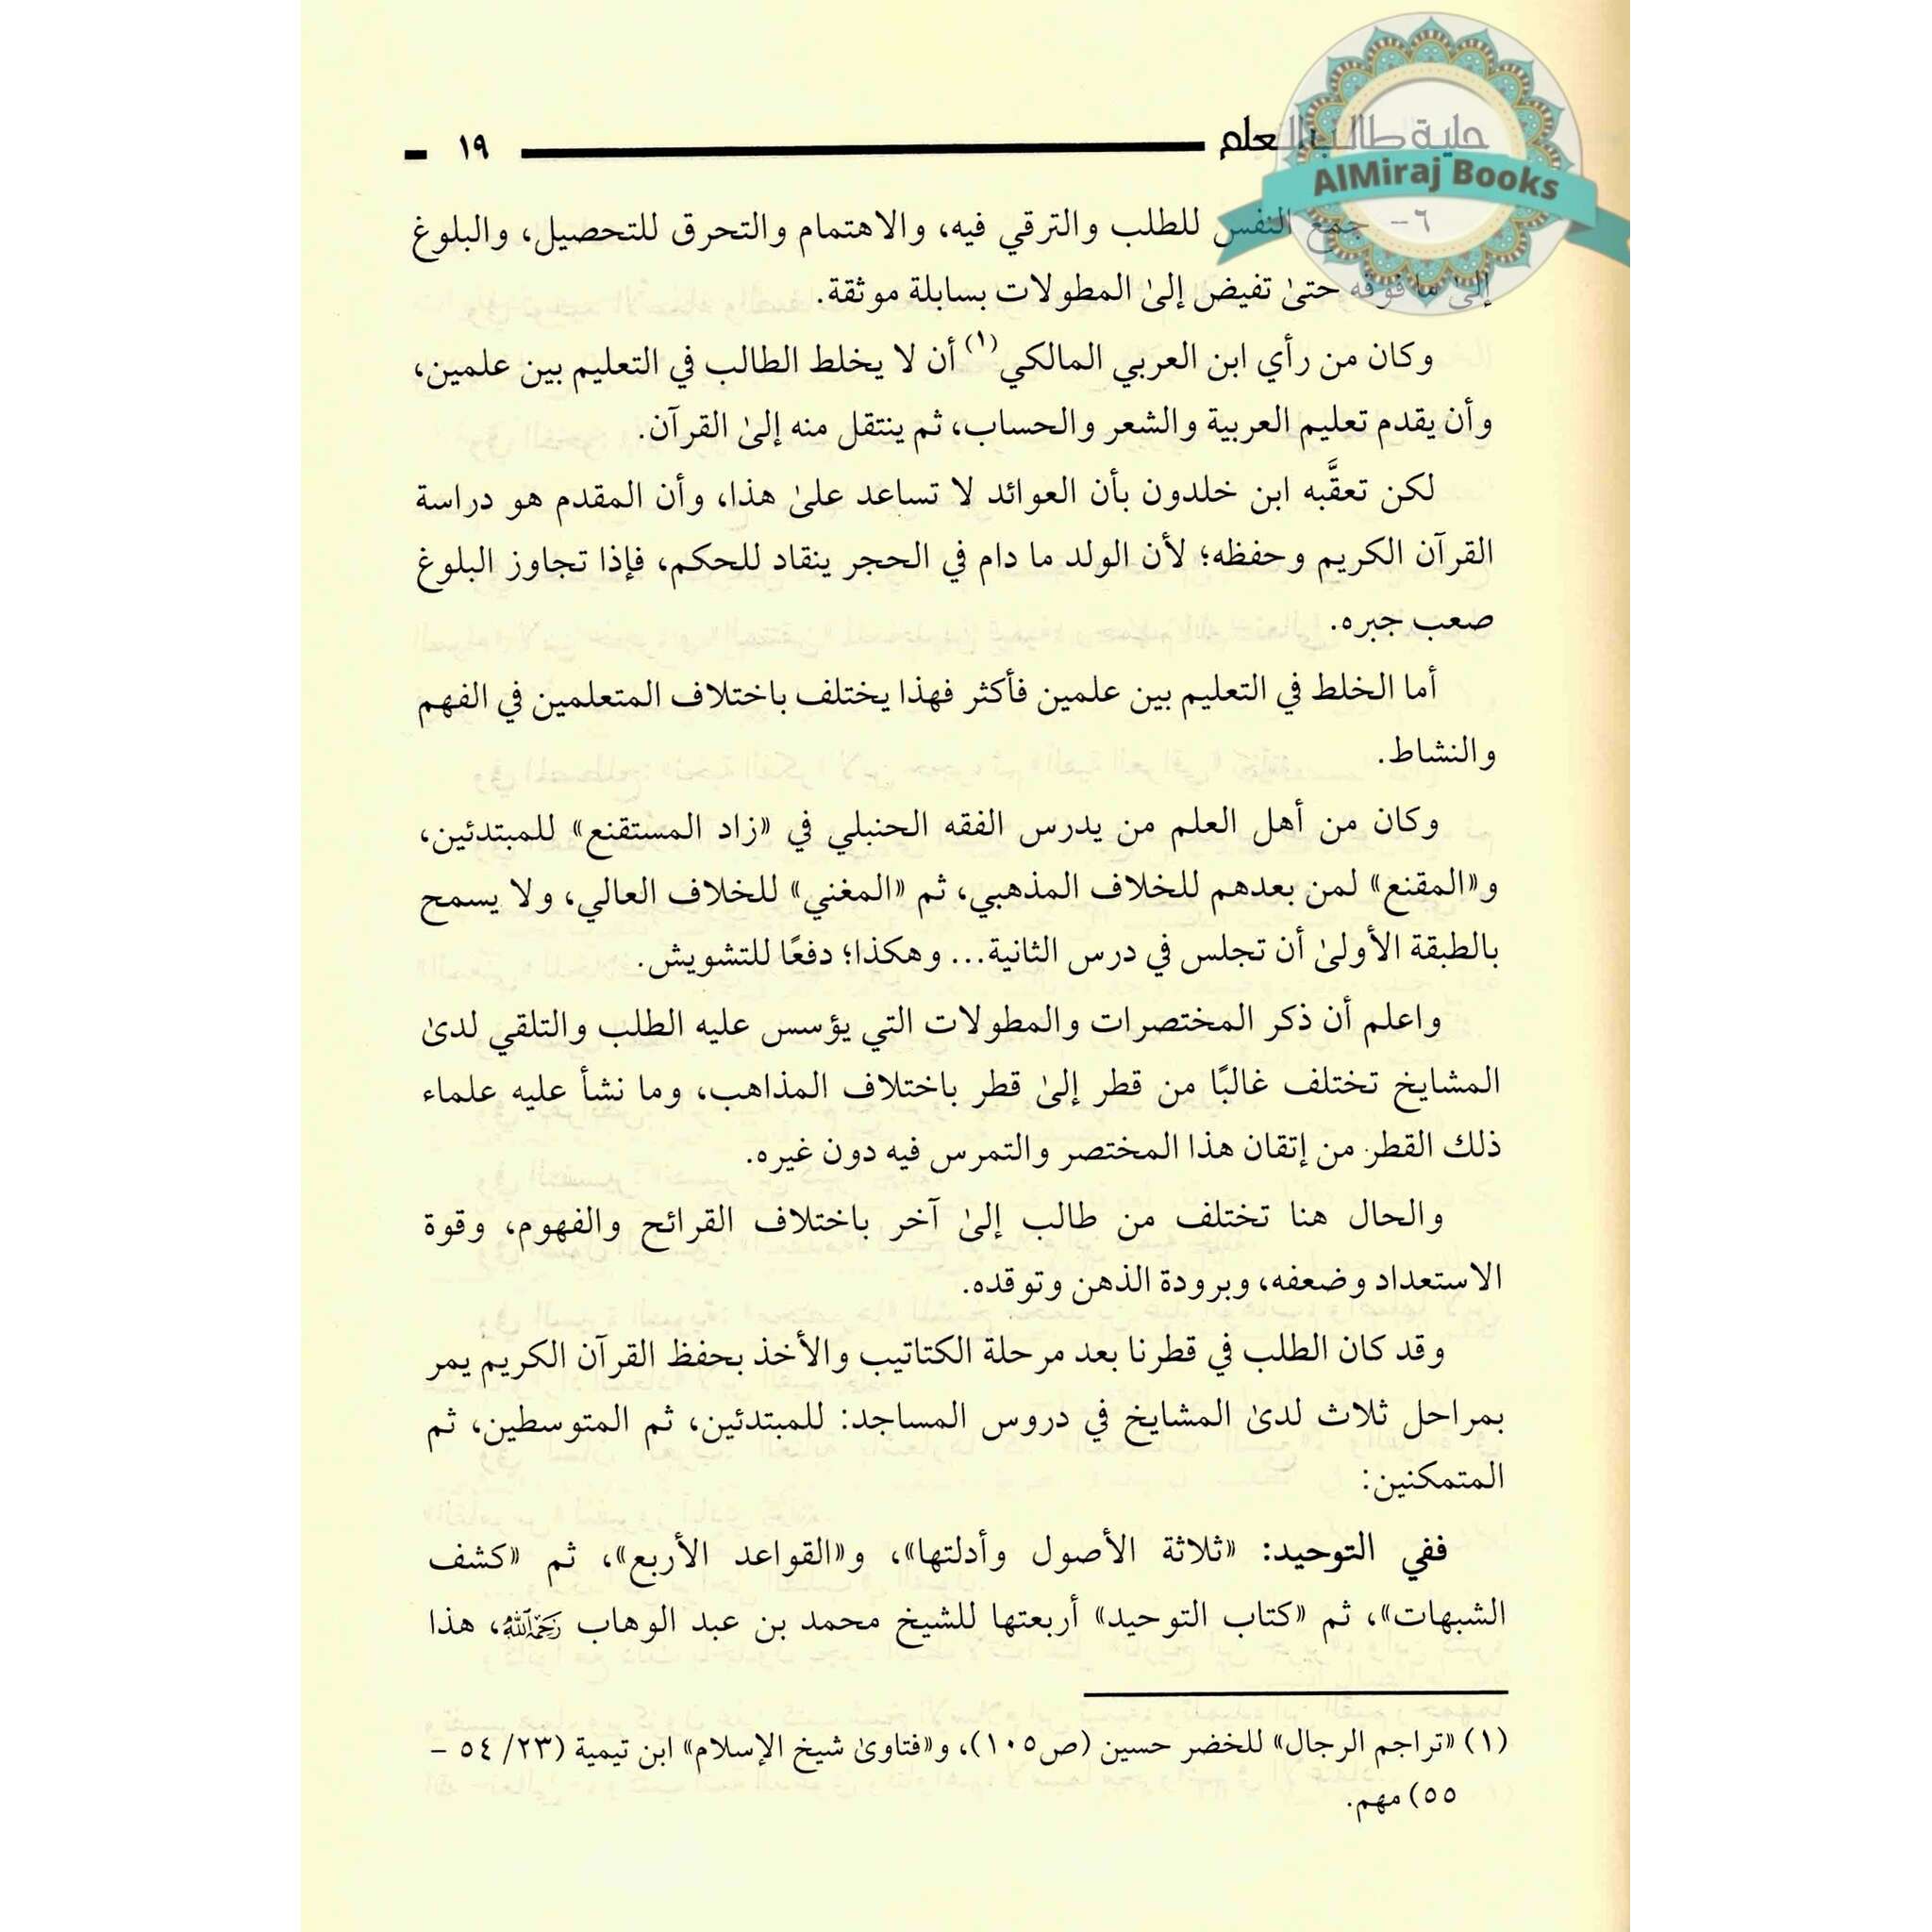 حلية طالب العلم ١٩
AlMiraj Books
٦- جمع النفس للطلب والترقي فيه، والاهتمام والتحرق للتحصيل، والبلوغ
إلى ما فوقه حتىٰ تفيض إلىٰ المطولات بسابلة موثقة.
وكان من رأي ابن العربي المالكي(١) أن لا يخلط الطالب في التعليم بين علمين،
وأن يقدم تعليم العربية والشعر والحساب، ثم ينتقل منه إلىٰ القرآن.
لكن تعقَّبه ابن خلدون بأن العوائد لا تساعد علىٰ هذا، وأن المقدم هو دراسة
القرآن الكريم وحفظه؛ لأن الولد ما دام في الحجر ينقاد للحكم، فإذا تجاوز البلوغ
صعب جبره.
أما الخلط في التعليم بين علمين فأكثر فهذا يختلف باختلاف المتعلمين في الفهم
والنشاط.
وكان من أهل العلم من يدرس الفقه الحنبلي في «زاد المستقنع» للمبتدئين،
و«المقنع» لمن بعدهم للخلاف المذهبي، ثم «المغني» للخلاف العالي، ولا يسمح
بالطبقة الأولىٰ أن تجلس في درس الثانية... وهكذا؛ دفعًا للتشويش.
واعلم أن ذكر المختصرات والمطولات التي يؤسس عليه الطلب والتلقي لدىٰ
المشايخ تختلف غالبًا من قطر إلىٰ قطر باختلاف المذاهب، وما نشأ عليه علماء
ذلك القطر من إتقان هذا المختصر والتمرس فيه دون غيره.
والحال هنا تختلف من طالب إلىٰ آخر باختلاف القرائح والفهوم، وقوة
الاستعداد وضعفه، وبرودة الذهن وتوقده.
وقد كان الطلب في قطرنا بعد مرحلة الكتاتيب والأخذ بحفظ القرآن الكريم يمر
بمراحل ثلاث لدىٰ المشايخ في دروس المساجد: للمبتدئين، ثم المتوسطين، ثم
المتمكنين:
ففي التوحيد: «ثلاثة الأصول وأدلتها»، و«القواعد الأربع»، ثم «كشف
الشبهات»، ثم «كتاب التوحيد» أربعتها للشيخ محمد بن عبد الوهاب رَحِمَهُ ٱللَّهُ، هذا
(١) «تراجم الرجال» للخضر حسين (ص١٠٥)، و«فتاوىٰ شيخ الإسلام» ابن تيمية (٢٣/ ٥٤ -
٥٥) مهم.